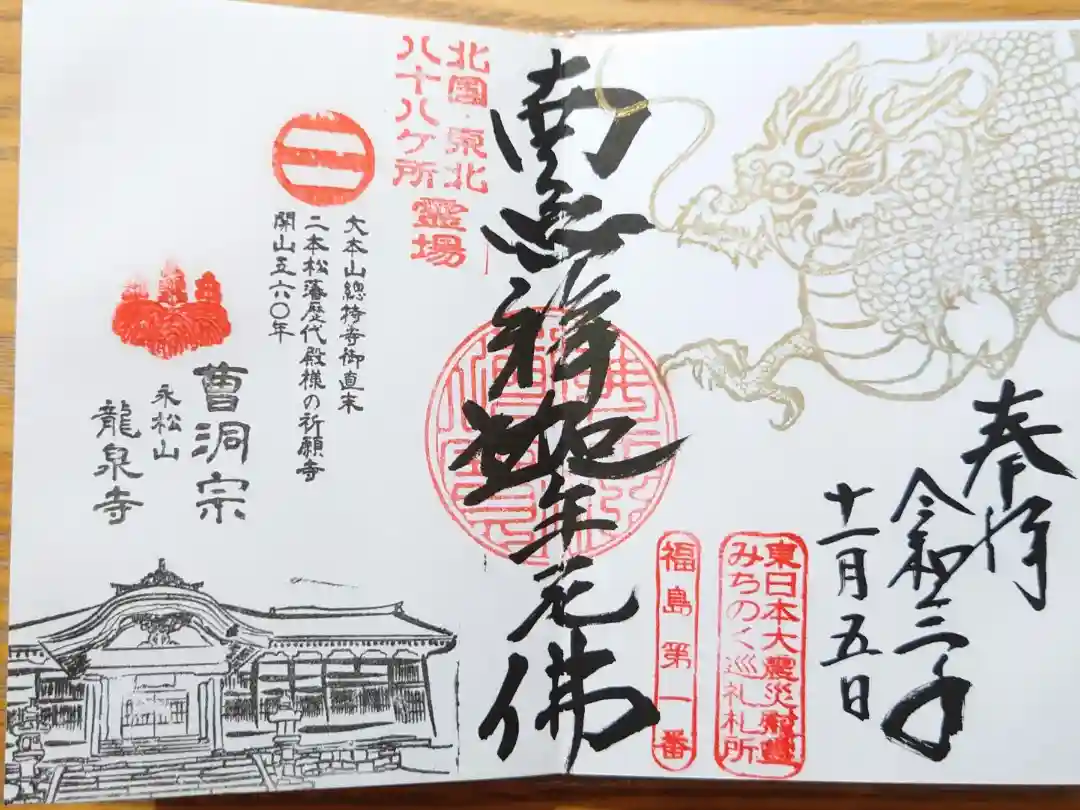 奉拝
令和三年
十一月五日
東日本大震災慰霊
みちのく巡礼札所
福島第一番
南無釈迦牟尼佛
北國・東北
八十八ケ所
霊場
大本山總持寺御直末
二本松藩歴代殿様の祈願寺
開山五六〇年
曹洞宗
永松山
龍泉寺